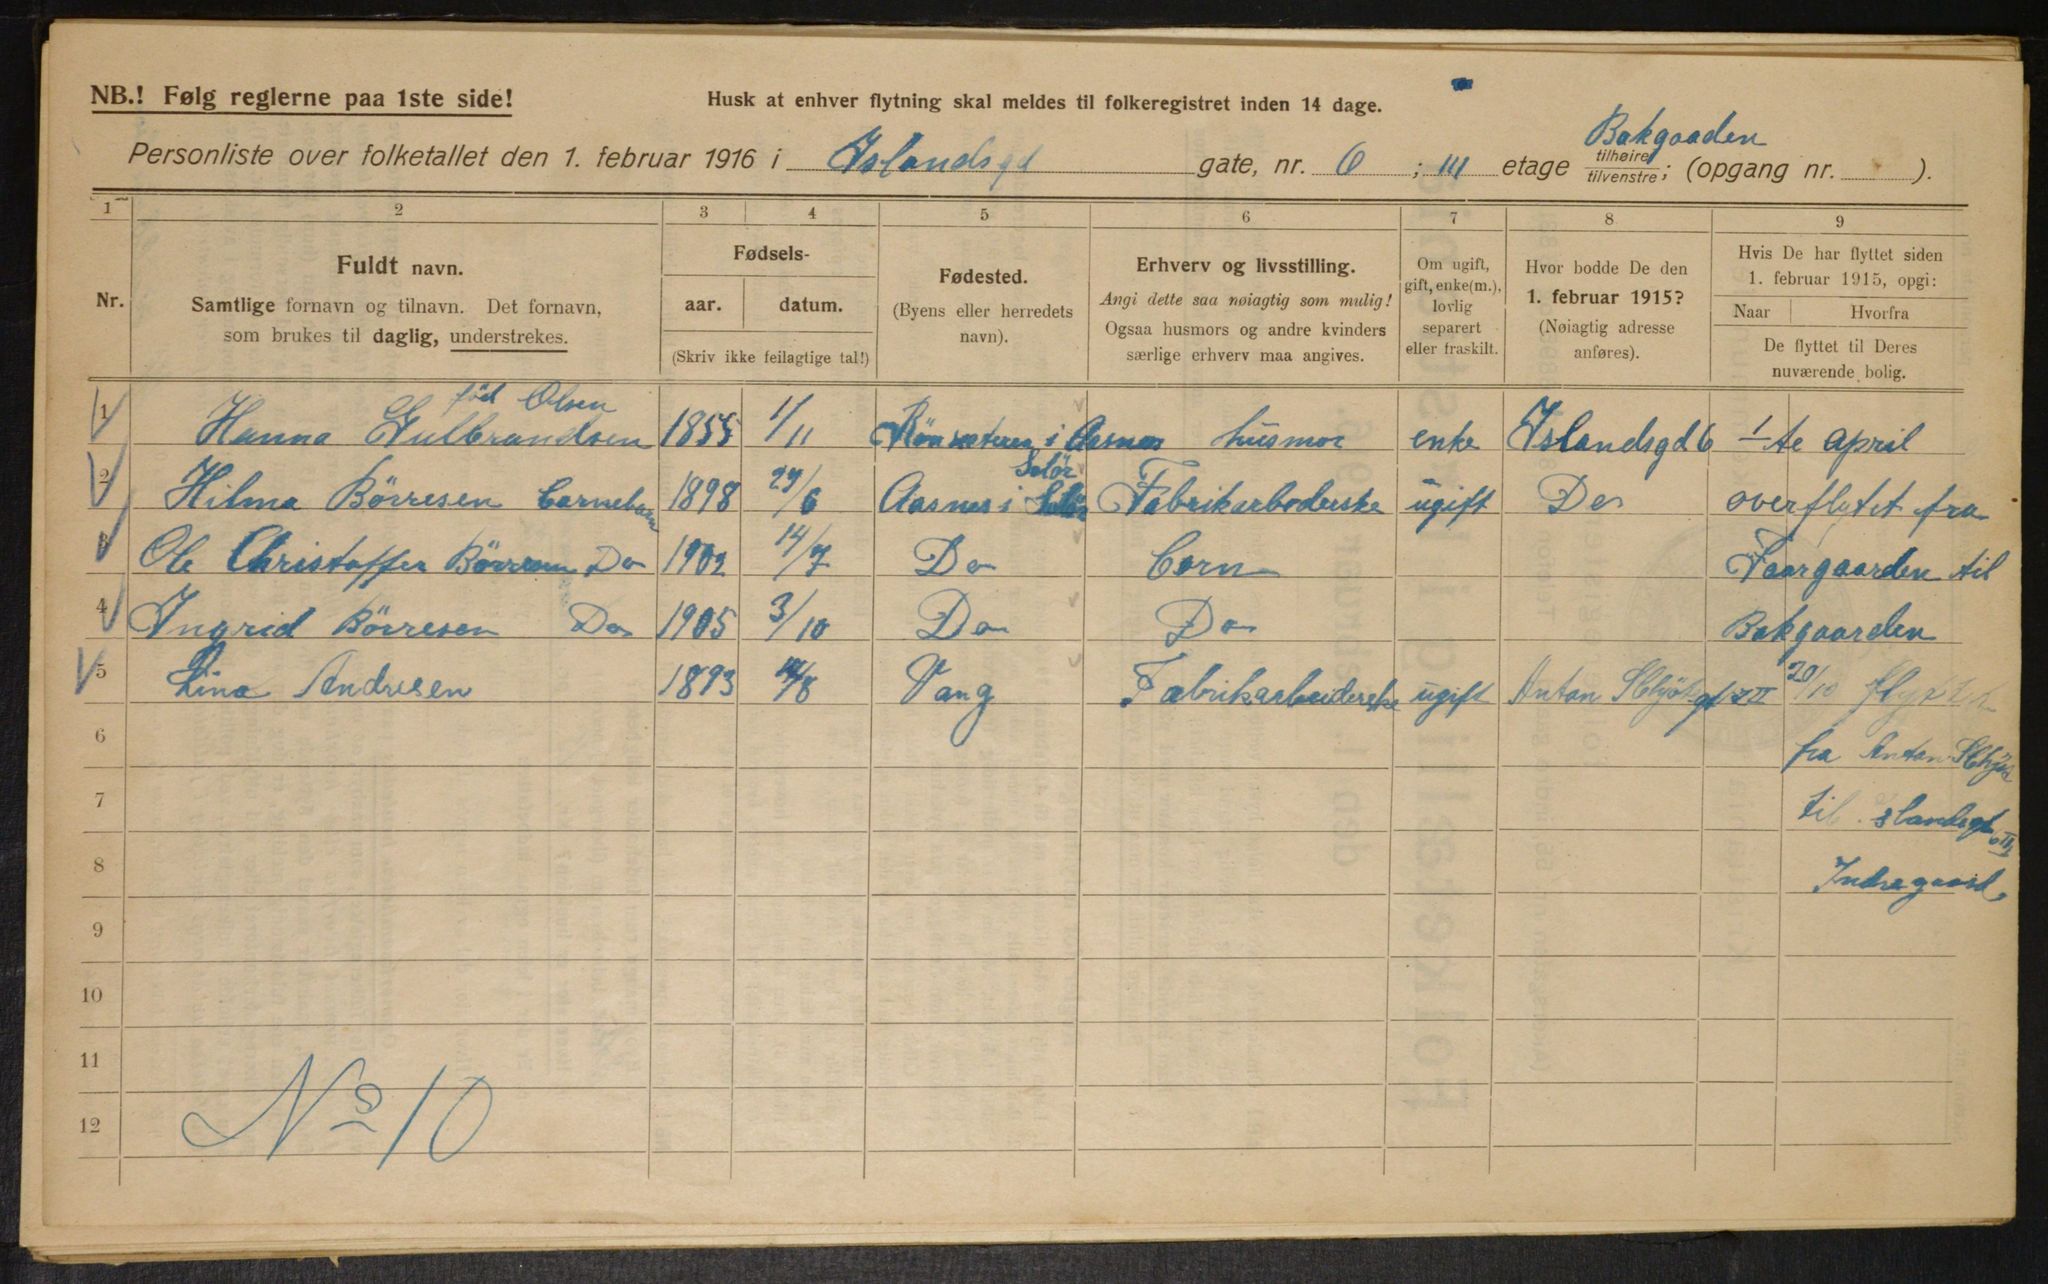 NB.! Følg reglerne paa 1ste side!
Husk at enhver flytning skal meldes til folkeregistret inden 14 dage.
Bakgaaden
Personliste over folketallet den 1. februar 1916 i Islandsgd gate, nr. 6 ; III etage tilhøire tilvenstre; (opgang nr. ).
1 2 3 4 5 6 7 8 9
Nr.
Fuldt navn.
Samtlige fornavn og tilnavn. Det fornavn,
som brukes til daglig, understrekes.
Fødsels-
aar. datum.
(Skriv ikke feilagtige tal!)
Fødested.
(Byens eller herredets
navn).
Erhverv og livsstilling.
Angi dette saa nøiagtig som mulig!
Ogsaa husmors og andre kvinders
særlige erhverv maa angives.
Om ugift,
gift, enke(m.),
lovlig
separert
eller fraskilt.
Hvor bodde De den
1. februar 1915?
(Nøiagtig adresse
anføres).
Hvis De har flyttet siden
1. februar 1915, opgi:
Naar Hvorfra
De flyttet til Deres
nuværende bolig.
föd Olsen
1 Hanna Gulbrandsen 1855 1/11 i Aasnes husmor enke Islandsgd 6 1/te april
Solör
2 Hilma Börresen Barnebarn 1898 29/6 Aasnes i Fabrikarboderske ugift Do overflytet fra
3 Ole Christoffer Börresen Do 1902 14/7 Do Barn Faargaarden til
4 Ingrid Börresen Do 1905 3/10 Do Do Bakgaarden
5 Lina Andresen 1893 /8 Vang Fabrikarbeiderske ugift Anton 20/10 flyttet
6 fra Anton
7 til slandsgt
8 Indregaard
9
10
11
12
No 10